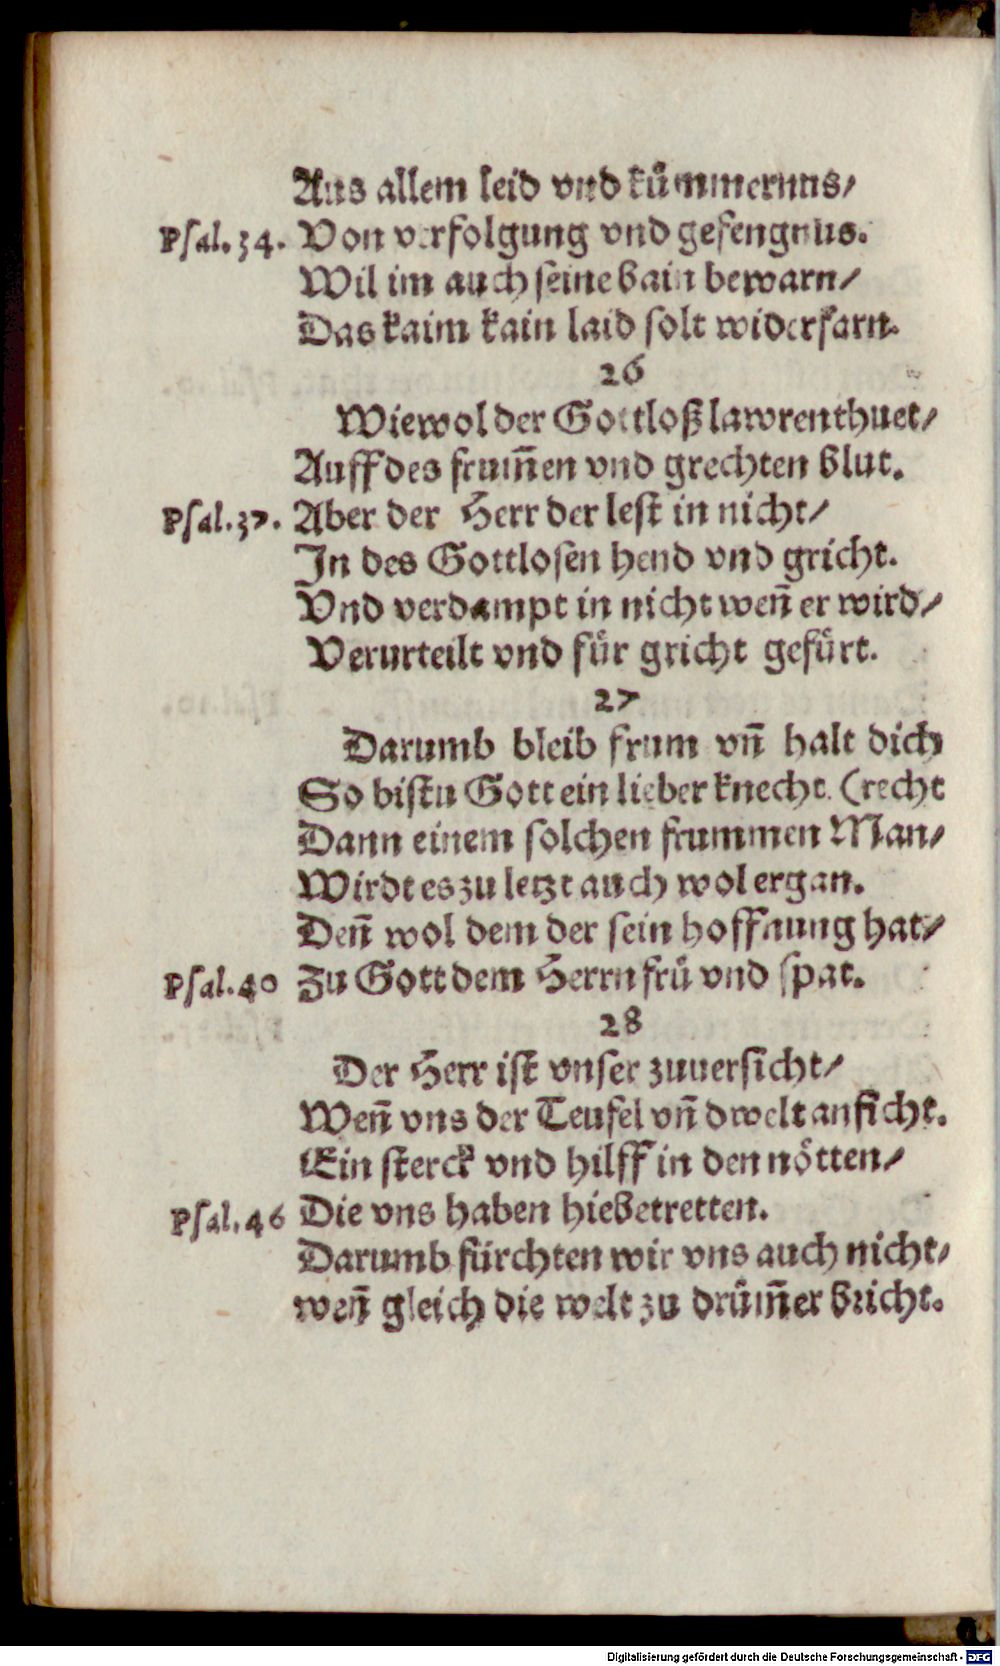 Aus allem leid vnd kümmernus/
Psal.34. Von verfolgung vnd gefengnus.
Wil im auch seine bain bewarn/
Das kaim kain laid solt widerfarn.
26
Wiewol der Gottloß lawren thuet/
Auff des frum̄en vnd grechten blut.
Psal.37. Aber der Herr der lest in nicht/
In des Gottlosen hend vnd gricht.
Vnd verdampt in nicht wen̄ er wird/
Verurteilt vnd für gricht gefürt.
27
Darumb bleib frum vn̄ halt dich
So bistu Gott ein lieber knecht. (recht
Dann einem solchen frummen Man/
Wirdt es zu letzt auch wol ergan.
Den̄ wol dem der sein hoffnung hat/
Psal.40 Zu Gott dem Herrn frü vnd spat.
28
Der Herr ist vnser zuuersicht/
Wen̄ vns der Teufel vn̄ dwelt anficht.
Ein sterck vnd hilff in den nötten/
Psal.46 Die vns haben hie betretten.
Darumb fürchten wir vns auch nicht/
wen̄ gleich die welt zu drüm̄er bricht.
Digitalisierung gefördert durch die Deutsche Forschungsgemeinschaft - DFG